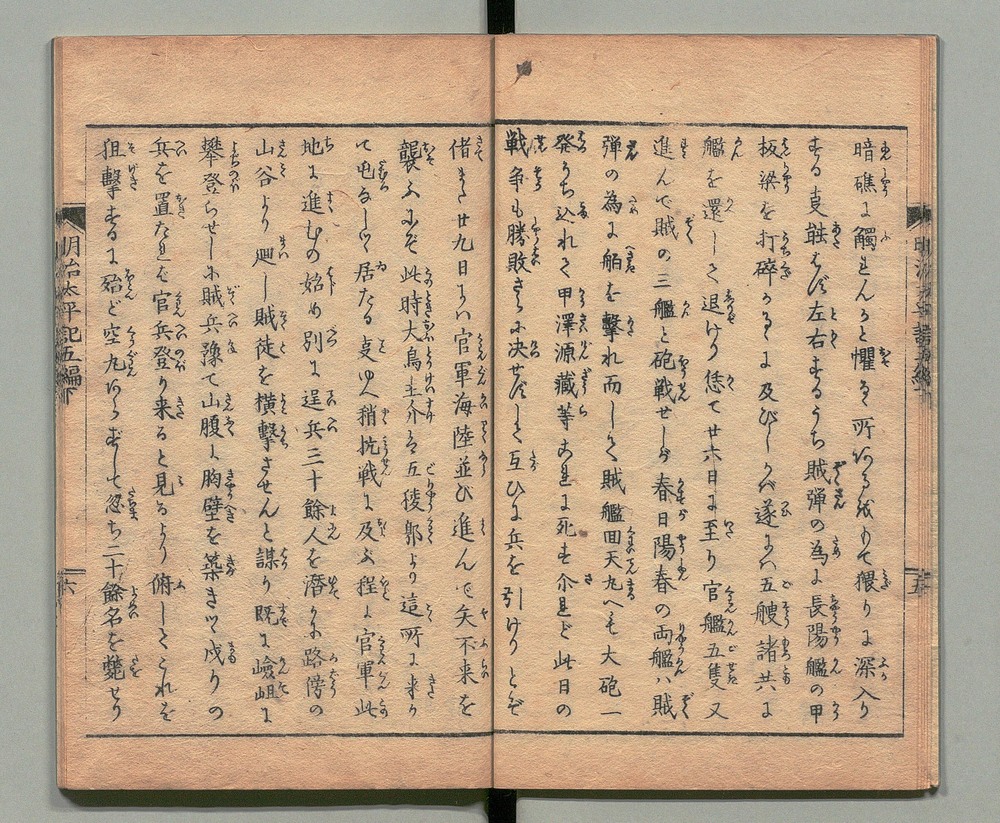 暗礁に觸れんかと懼るゝ所あるを以て猥りに深入り
する事能はず左右するうち賊弾の為に長陽艦の甲
板梁を打碎かるゝに及びしかバ遂にハ五艘諸共に
艦を還して退けり恁て廿六日に至り官艦五隻又
進んで賊の三艦と砲戦せしが春日陽春の両艦ハ賊
弾の為に舶を撃れ而して賊艦回天丸へも大砲一
発うち込れて甲澤源藏等あまた死す介れど此日の
戦争も勝敗さらに决せずして互ひに兵を引けりとぞ
偖また廿九日にハ官軍海陸並び進んで矢不来を
襲ふにぞ此時大鳥圭介ハ五稜郭より這所に来り
て屯なして居たる事ゆへ稍抗戦に及ぶ程に官軍此
地に進むの始め別に逞兵三十餘人を潜かに路傍の
山谷より廻し賊徒を横撃させんと謀り既に嶮岨に
攀登らせしに賊兵豫て山腹に胸壁を築きつゝ戍りの
兵を置たれど官兵登り来ると見るより俯してこれを
狙撃するに殆ど空丸あらずして忽ち二十餘名を斃せり
明治太平記五編下
六
五